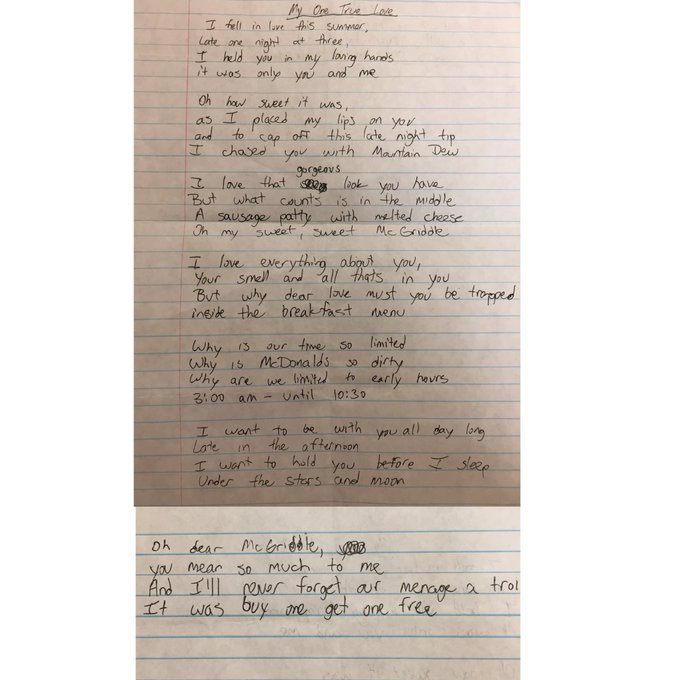 My One True Love
I fell in love this summer,
Late one night at three,
I held you in my loving hands
it was only you and me
Oh how sweet it was,
as I placed my lips on you
and to cap off this late night tip
I chased you with Mountain Dew
gorgeous
I love that look you have
But what counts is in the middle
A sausage patty with melted cheese
Oh my sweet, sweet McGriddle
I love everything about you,
Your smell and all thats in you
But why dear love must you be trapped
inside the breakfast menu
Why is our time so limited
Why is McDonalds so dirty
Why are we limited to early hours
3:00 am - until 10:30
I want to be with you all day long
Late in the afternoon
I want to hold you before I sleep
Under the stars and moon
Oh dear McGriddle,
you mean so much to me
And I'll never forget our menage a troi
It was buy one get one free